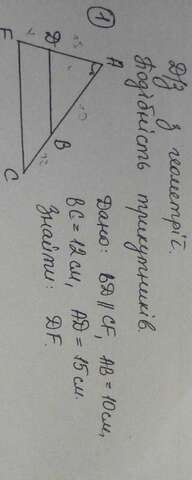 Д/З з геометрії.
Подібність трикутників.
①
Дано: BD || CF, AB = 10см,
BC = 12см, AD = 15см.
Знайти: DF.
F
D
15
A
10
B
12
C